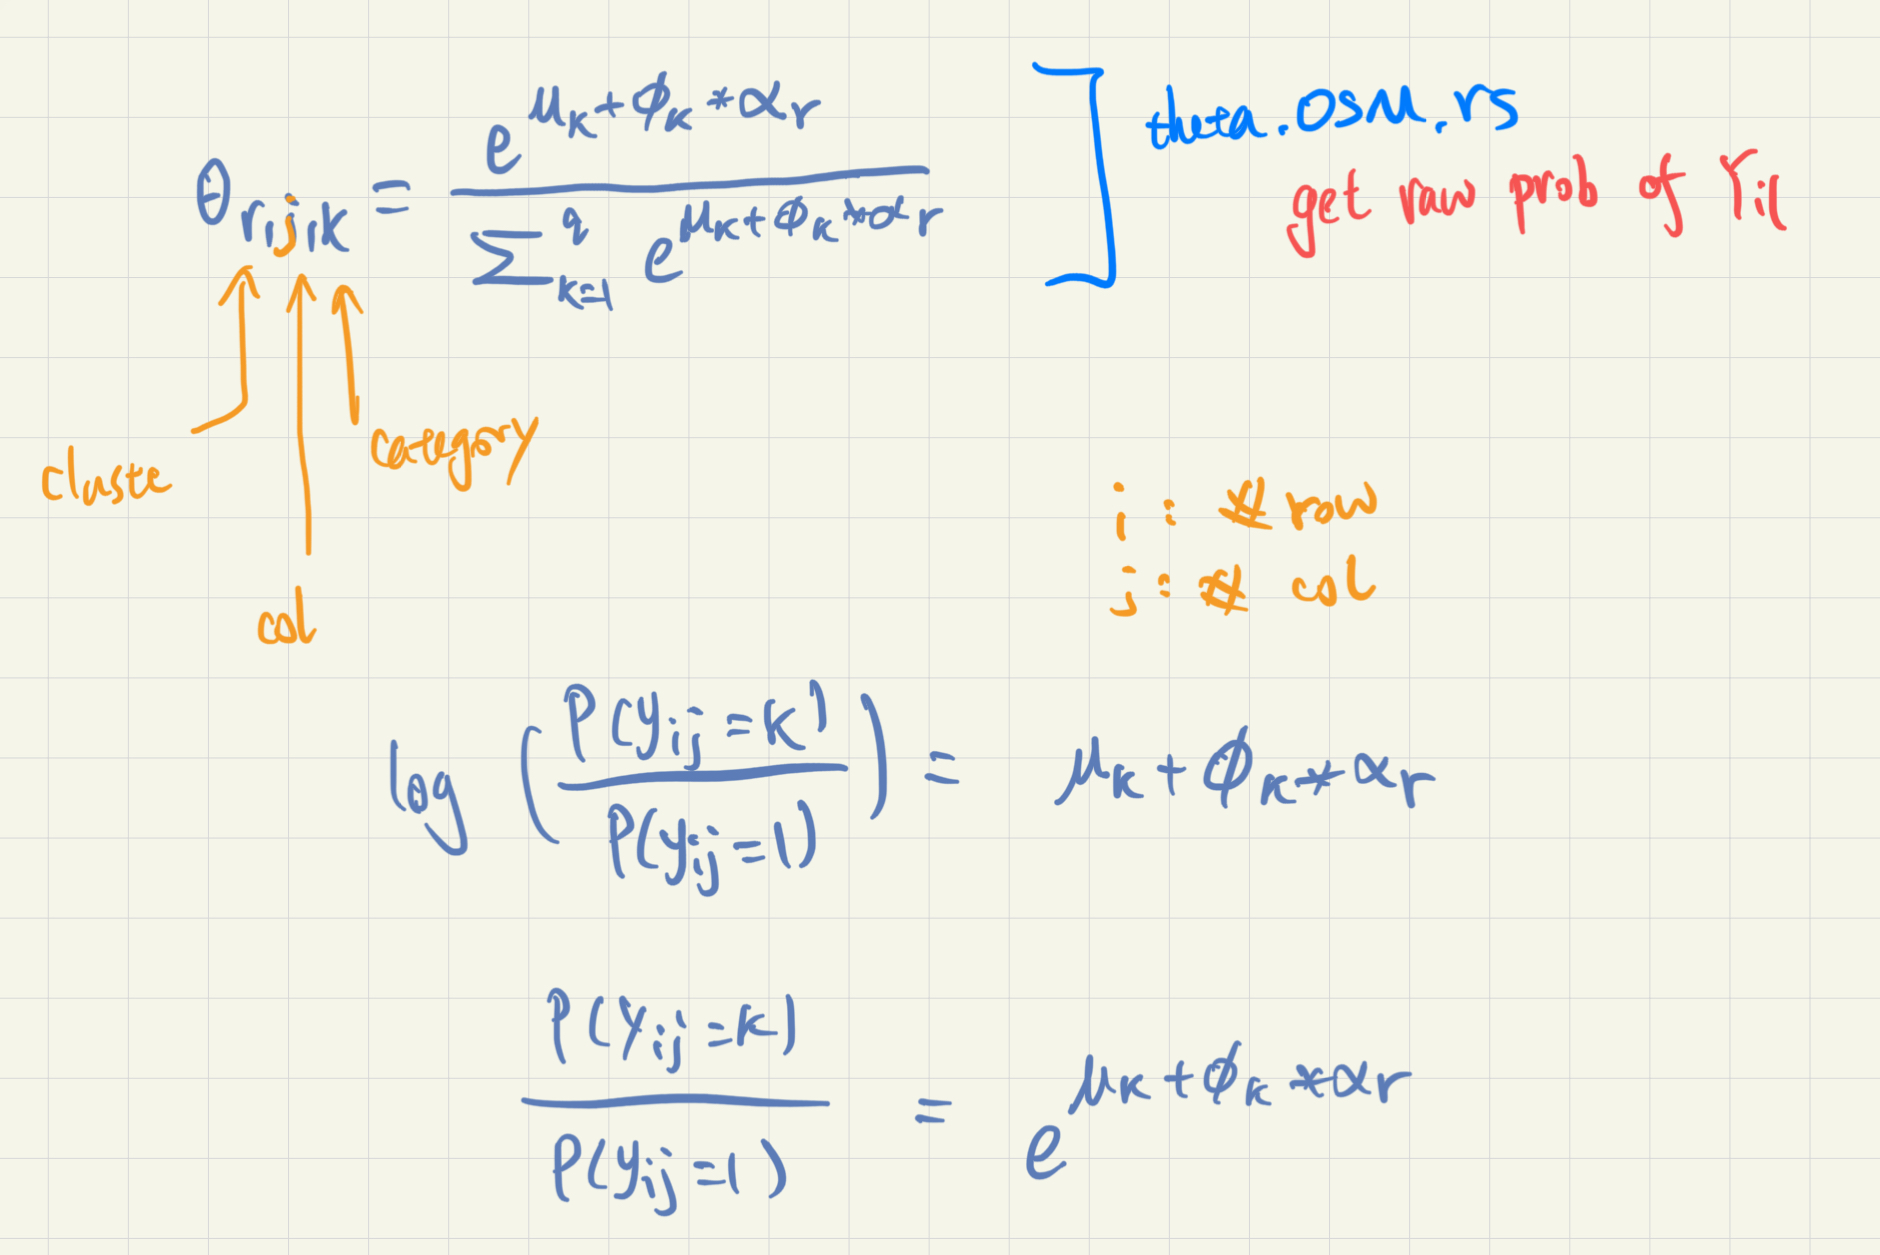 θ_{r,j,k} = \frac{e^{μ_k + φ_k * α_r}}{\sum_{k=1}^{q} e^{μ_k + φ_k * α_r}}
theta.OSM.rs
get raw prob of
cluste
category
col
i : # row
j : # col
log ( \frac{P(y_{ij} = k)}{P(y_{ij} = 1)} ) = μ_k + φ_k * α_r
\frac{P(y_{ij} = k)}{P(y_{ij} = 1)} = e^{μ_k + φ_k * α_r}